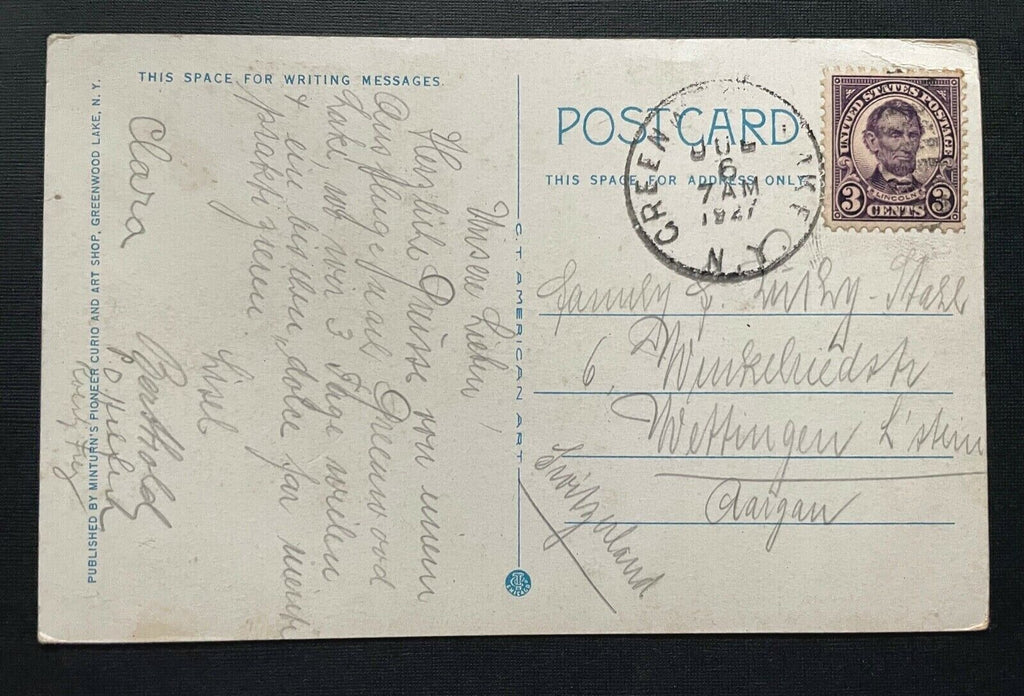 THIS SPACE FOR WRITING MESSAGES.
Unsere Lieben!
Herzliche Grüsse von einem
Ausfluge nach Greenwood
Lake, wo wir 3 Tage weilen
& ein bisschen dolce far niente
praktizieren.
Lisel
Berthold
Clara
PUBLISHED BY MINTURN'S PIONEER CURIO AND ART SHOP, GREENWOOD LAKE, N.Y.
C.T. AMERICAN ART
CHICAGO
POST CARD
THIS SPACE FOR ADDRESS ONLY
JUL
6
7 AM
1927
N.Y.
UNITED STATES POSTAGE
LINCOLN
3 CENTS 3
Family
6, Winkelriedstr
Wettingen
Aargau
Switzerland